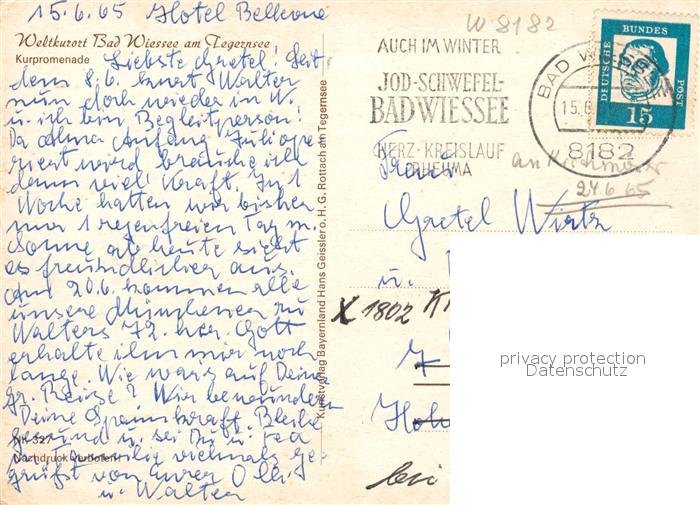 15.6.65 Hotel Bellevue
Weltkurort Bad Wiessee am Tegernsee
Kurpromenade
Liebste Gretel! Seit
dem 8.6. kurt Walter
nun doch wieder in W.
u. ich bin Begleitperson!
Da Alma Anfang Juli ope
riert wird brauche ich
dann viel Kraft. In 1
Woche hatten wir bisher
nur 1 regenfreien Tag m.
Sonne ab heute sieht
es freundlicher aus.
Am 20.6. kommen alle
unsere Münchener zu
Walters 72. her. Gott
erhalte ihn mir noch
lange. Wie war's auf Deiner
gr. Reise? Wir bewundern
Deine Spannkraft. Bleibe
gesund u. sei Du u.
Familie vielmals ge
grüßt von Eurer Olli
u. Walter
327
Nachdruck verboten!
Kunstverlag Bayernland Hans Geissler o. H. G. Rottach am Tegernsee
W 8182
AUCH IM WINTER
JOD-SCHWEFEL-
BAD WIESSEE
HERZ-KREISLAUF
RHEUMA
BAD W
15.6
8182
DEUTSCHE BUNDES POST
15
24.6.65
Frau
Gretel Wirtz
u.
X 1802
7
Hoh
bei
privacy protection
Datenschutz